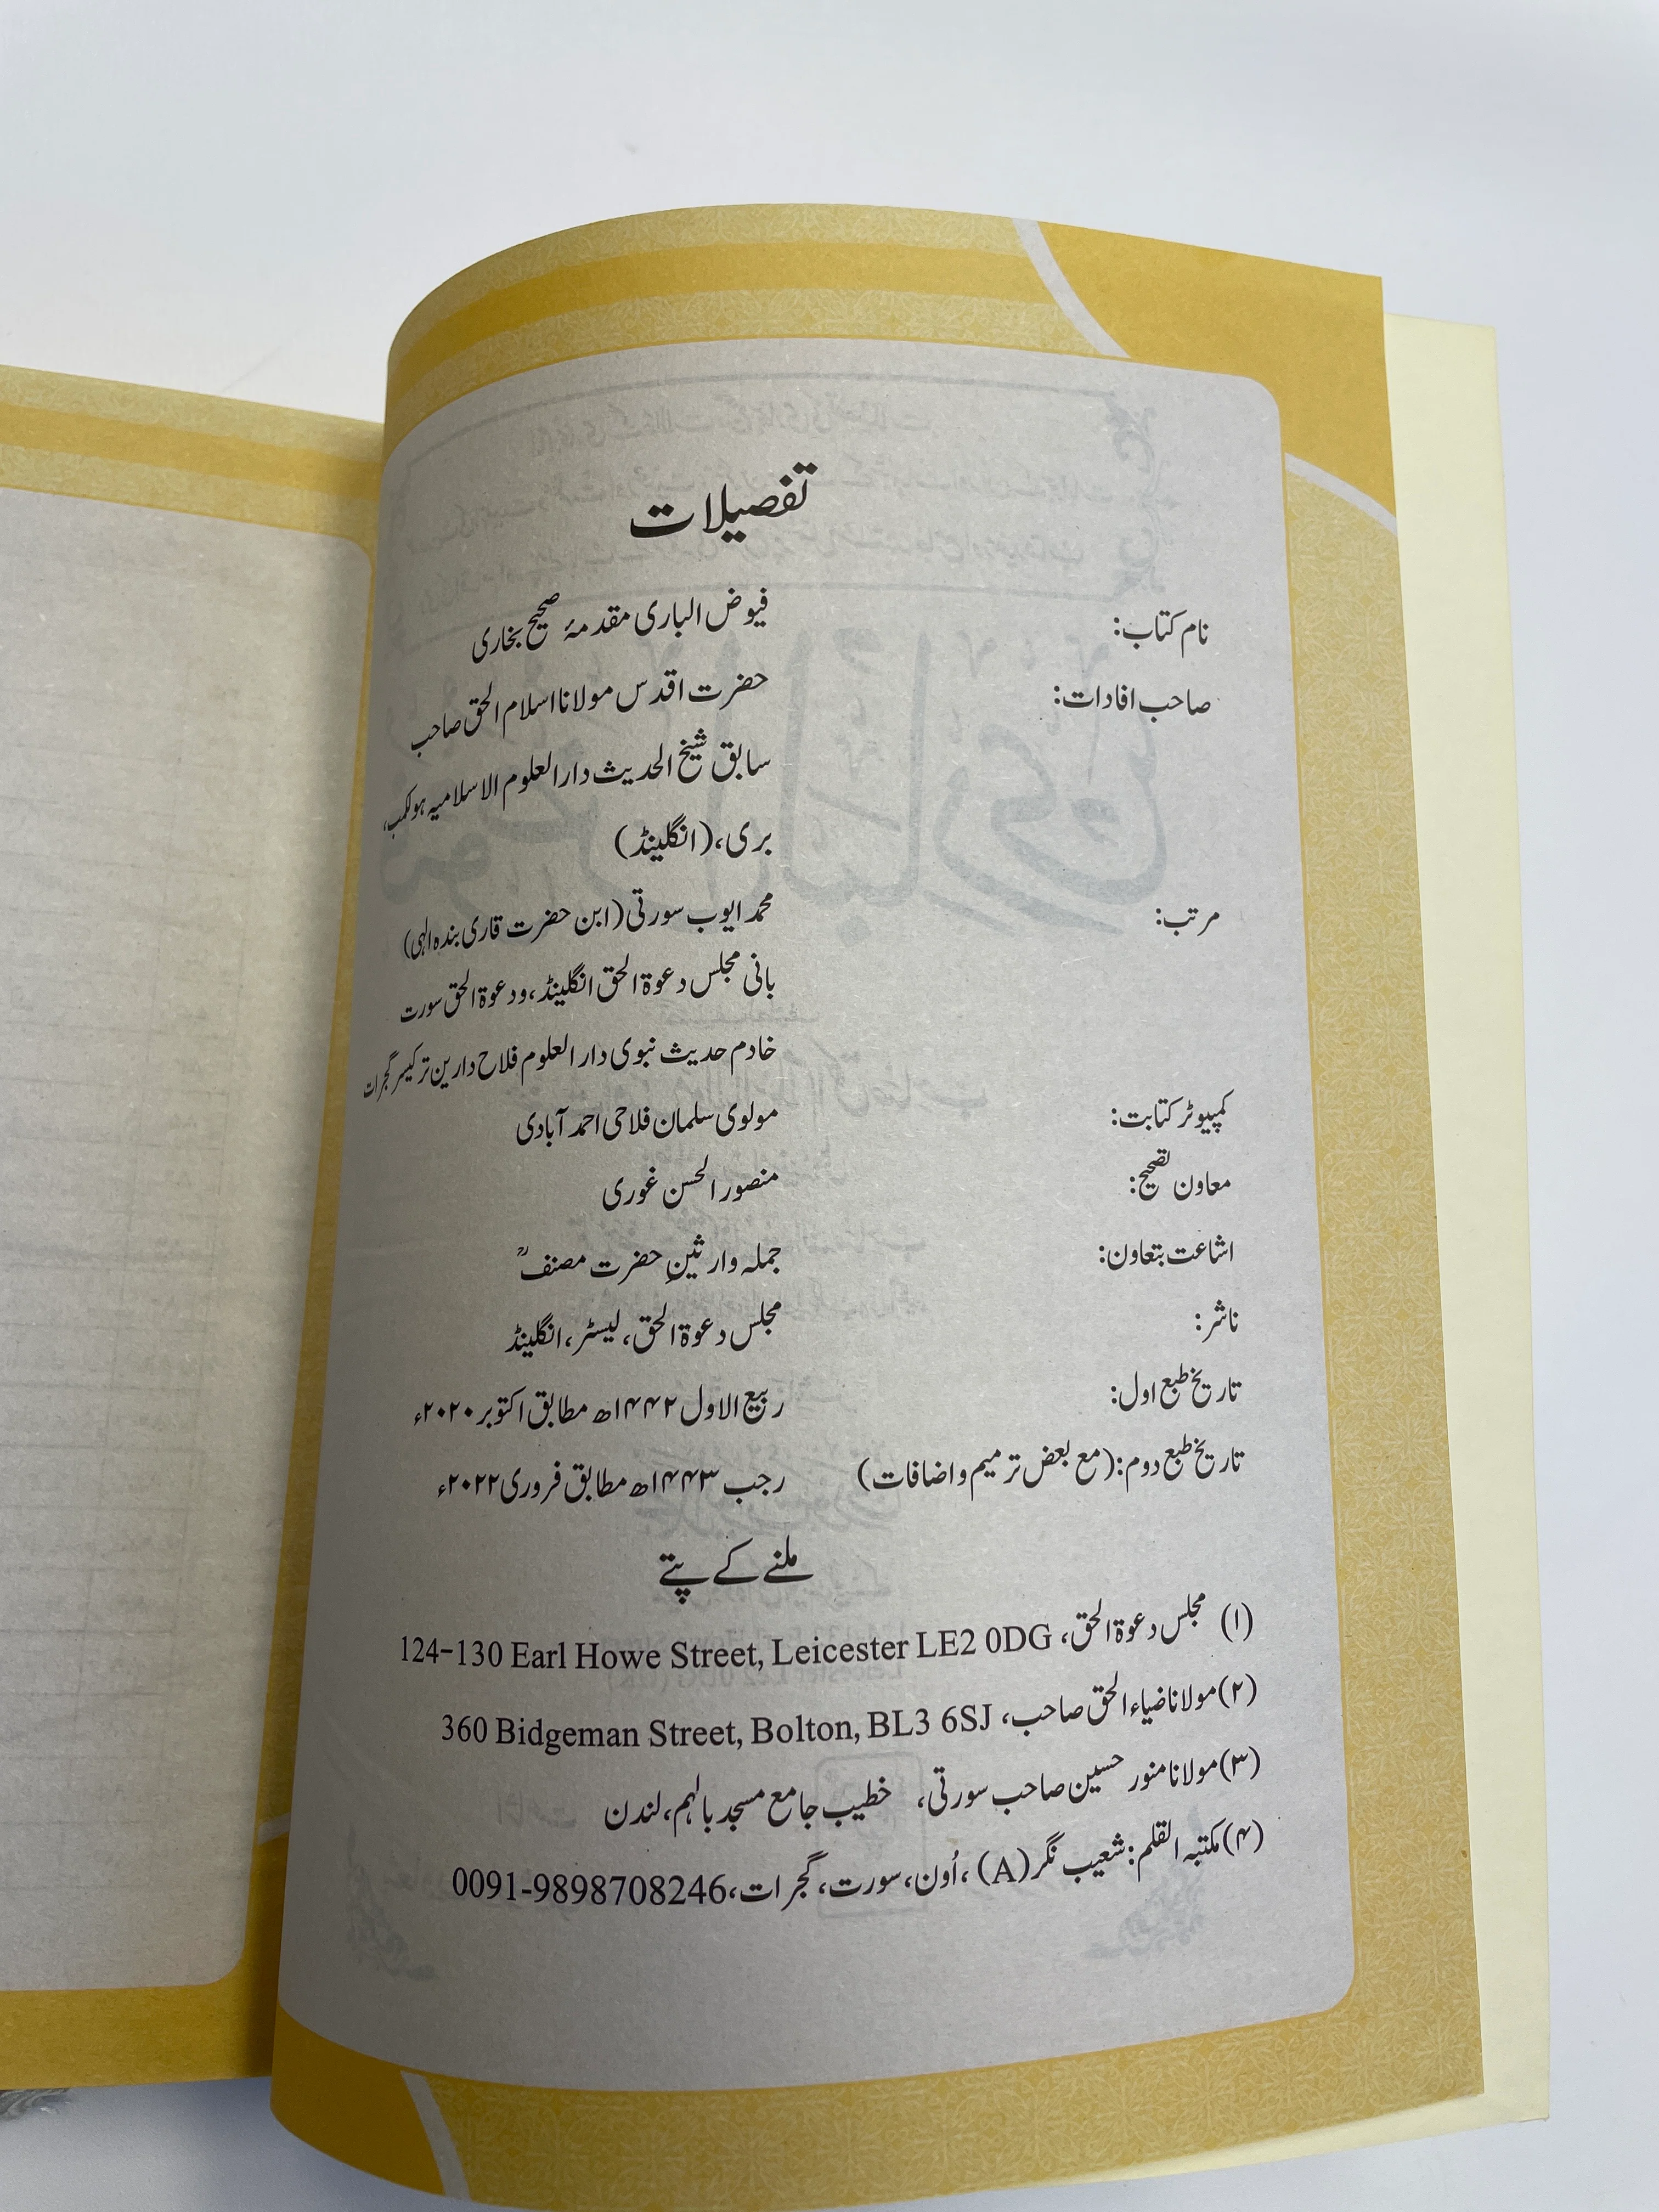 تفصیلات
نام کتاب: فیوض الباری مقدمۂ صحیح بخاری
صاحب افادات: حضرت اقدس مولانا اسلام الحق صاحب
سابق شیخ الحدیث دارالعلوم الاسلامیہ ہولکمب،
بری، (انگلینڈ)
مرتب: محمد ایوب سورتی (ابن حضرت قاری بندہ الٰہی)
بانی مجلس دعوۃ الحق انگلینڈ، ودعوۃ الحق سورت
خادم حدیث نبوی دارالعلوم فلاح دارین ترکیسر گجرات
کمپیوٹر کتابت: مولوی سلمان فلاحی احمدآبادی
معاون تصحیح: منصور الحسن غوری
اشاعت بتعاون: جملہ وارثینِ حضرت مصنفؒ
ناشر: مجلس دعوۃ الحق، لیسٹر، انگلینڈ
تاریخ طبع اول: ربیع الاول ۱۴۴۲ھ مطابق اکتوبر ۲۰۲۰ء
تاریخ طبع دوم: (مع بعض ترمیم واضافات) رجب ۱۴۴۳ھ مطابق فروری ۲۰۲۲ء
ملنے کے پتے
(۱) مجلس دعوۃ الحق، 124-130 Earl Howe Street, Leicester LE2 0DG
(۲) مولانا ضیاء الحق صاحب، 360 Bidgeman Street, Bolton, BL3 6SJ
(۳) مولانا منور حسین صاحب سورتی، خطیب جامع مسجد بالہم، لندن
(۴) مکتبہ القلم: شعیب نگر (A)، اُون، سورت، گجرات، 0091-9898708246